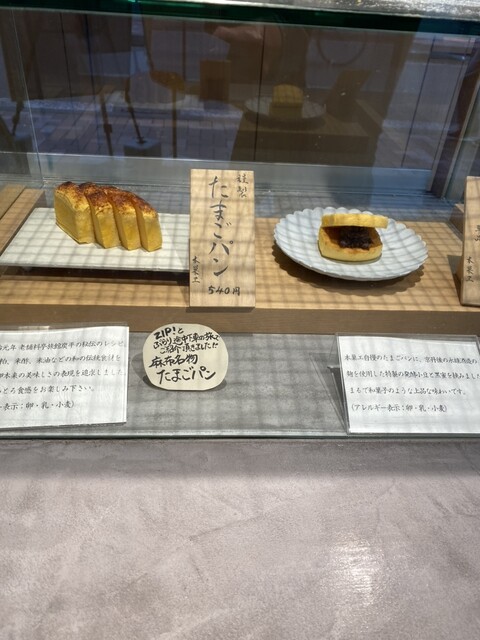 謹製
たまごパン
木巣工
540円
ZIP!と
ぶらり途中下車の旅で
ご紹介頂きました!!
麻布名物
たまごパン
元年 老舗料亭旅館
秘伝のレシピ
粕、米酢、米油などの和の伝統食材を
本来の美味しさの表現を追求しました
とろ食感をお楽しみ下さい。
表示：卵・乳・小麦）
木巣工自慢のたまごパンに、
麹を使用した特製の発酵小豆と黒蜜を挟みました
まるで和菓子のような上品な味わいです。
（アレルギー表示：卵・乳・小麦）